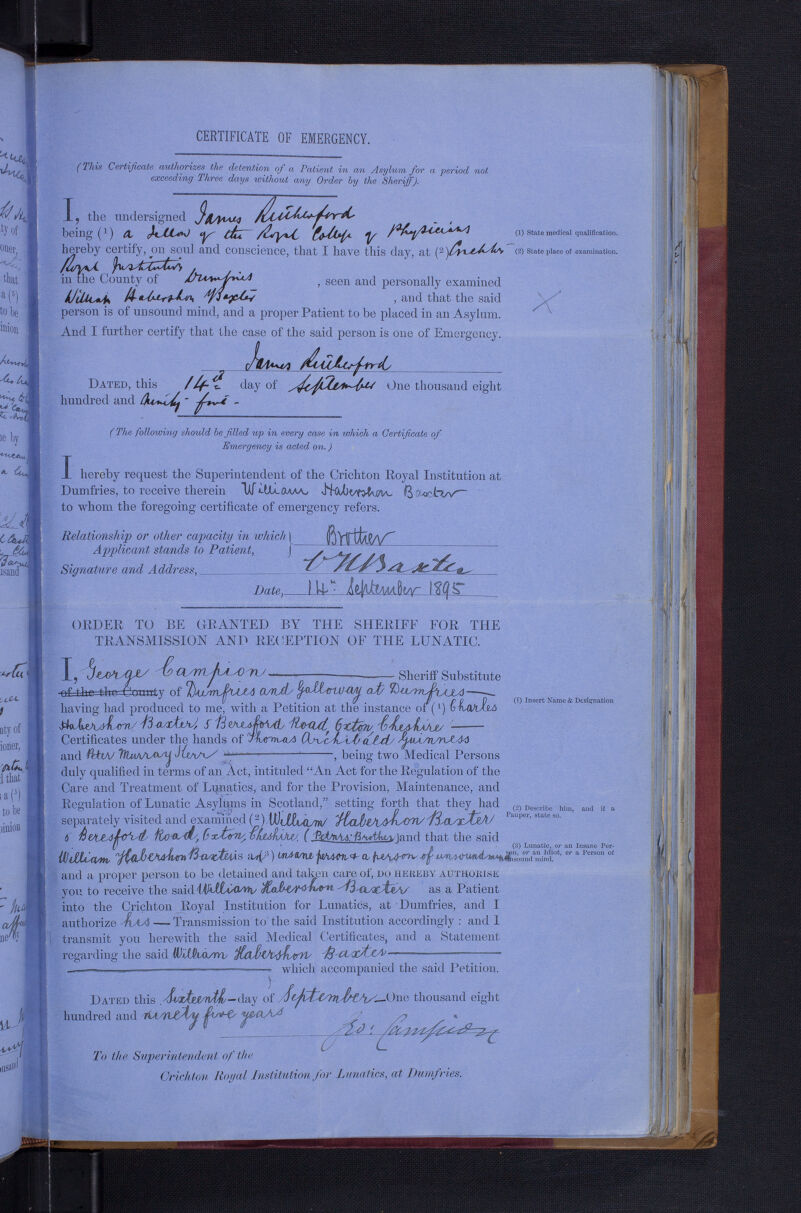 CERTIFICATE OF EMERGENCY.
(This Certificate authorizes the detention of a Patient in an Asylum for a period not
exceeding Three days without any Order by the Sheriff).
I, the undersigned James Rutherford
being (1) a Fellow of the Royal College of Physicians
(1) State medical qualification.
hereby certify, on soul and conscience, that I have this day, at (2) Crichton
(2) State place of examination.
Royal Institution
in the County of Dumfries , seen and personally examined
William Habershon Baxter , and that the said
person is of unsound mind, and a proper Patient to be placed in an Asylum.
And I further certify that the case of the said person is one of Emergency.
James Rutherford
DATED, this 14th day of September One thousand eight
hundred and ninety five -
(The following should be filled up in every case in which a Certificate of
Emergency is acted on.)
I hereby request the Superintendent of the Crichton Royal Institution at
Dumfries, to receive therein William Habershon Baxter
to whom the foregoing certificate of emergency refers.
Relationship or other capacity in which
Applicant stands to Patient, } Brother
Signature and Address, C H Baxter
Date, 14th September 1895
ORDER TO BE GRANTED BY THE SHERIFF FOR THE
TRANSMISSION AND RECEPTION OF THE LUNATIC.
I, George Campion Sheriff Substitute
of the the County of Dumfries and Galloway at Dumfries
(1) Insert Name & Designation
having had produced to me, with a Petition at the instance of (1) Charles
Habershon Baxter, 5 Beresford Road, Oxton, Cheshire
Certificates under the hands of Thomas Archibald Guinness
and Peter Murray Kerr , being two Medical Persons
duly qualified in terms of an Act, intituled "An Act for the Regulation of the
Care and Treatment of Lunatics, and for the Provision, Maintenance, and
Regulation of Lunatic Asylums in Scotland," setting forth that they had
separately visited and examined (2) William Habershon Baxter
(2) Describe him, and if a
Pauper, state so.
5 Beresford Road, Oxton, Cheshire, (Petnrs: Brother) and that the said
William Habershon Baxter is a (3) insane person & a person of unsound mind
(3) Lunatic, or an Insane Per-
son, or an Idiot, or a Person of
unsound mind.
and a proper person to be detained and taken care of, DO HEREBY AUTHORISE
you to receive the said William Habershon Baxter as a Patient
into the Crichton Royal Institution for Lunatics, at Dumfries, and I
authorize his Transmission to the said Institution accordingly : and I
transmit you herewith the said Medical Certificates, and a Statement
regarding the said William Habershon Baxter
which accompanied the said Petition.
DATED this Sixteenth day of September One thousand eight
hundred and ninety five years
Geo: Campion
To the Superintendent of the
Crichton Royal Institution for Lunatics, at Dumfries.